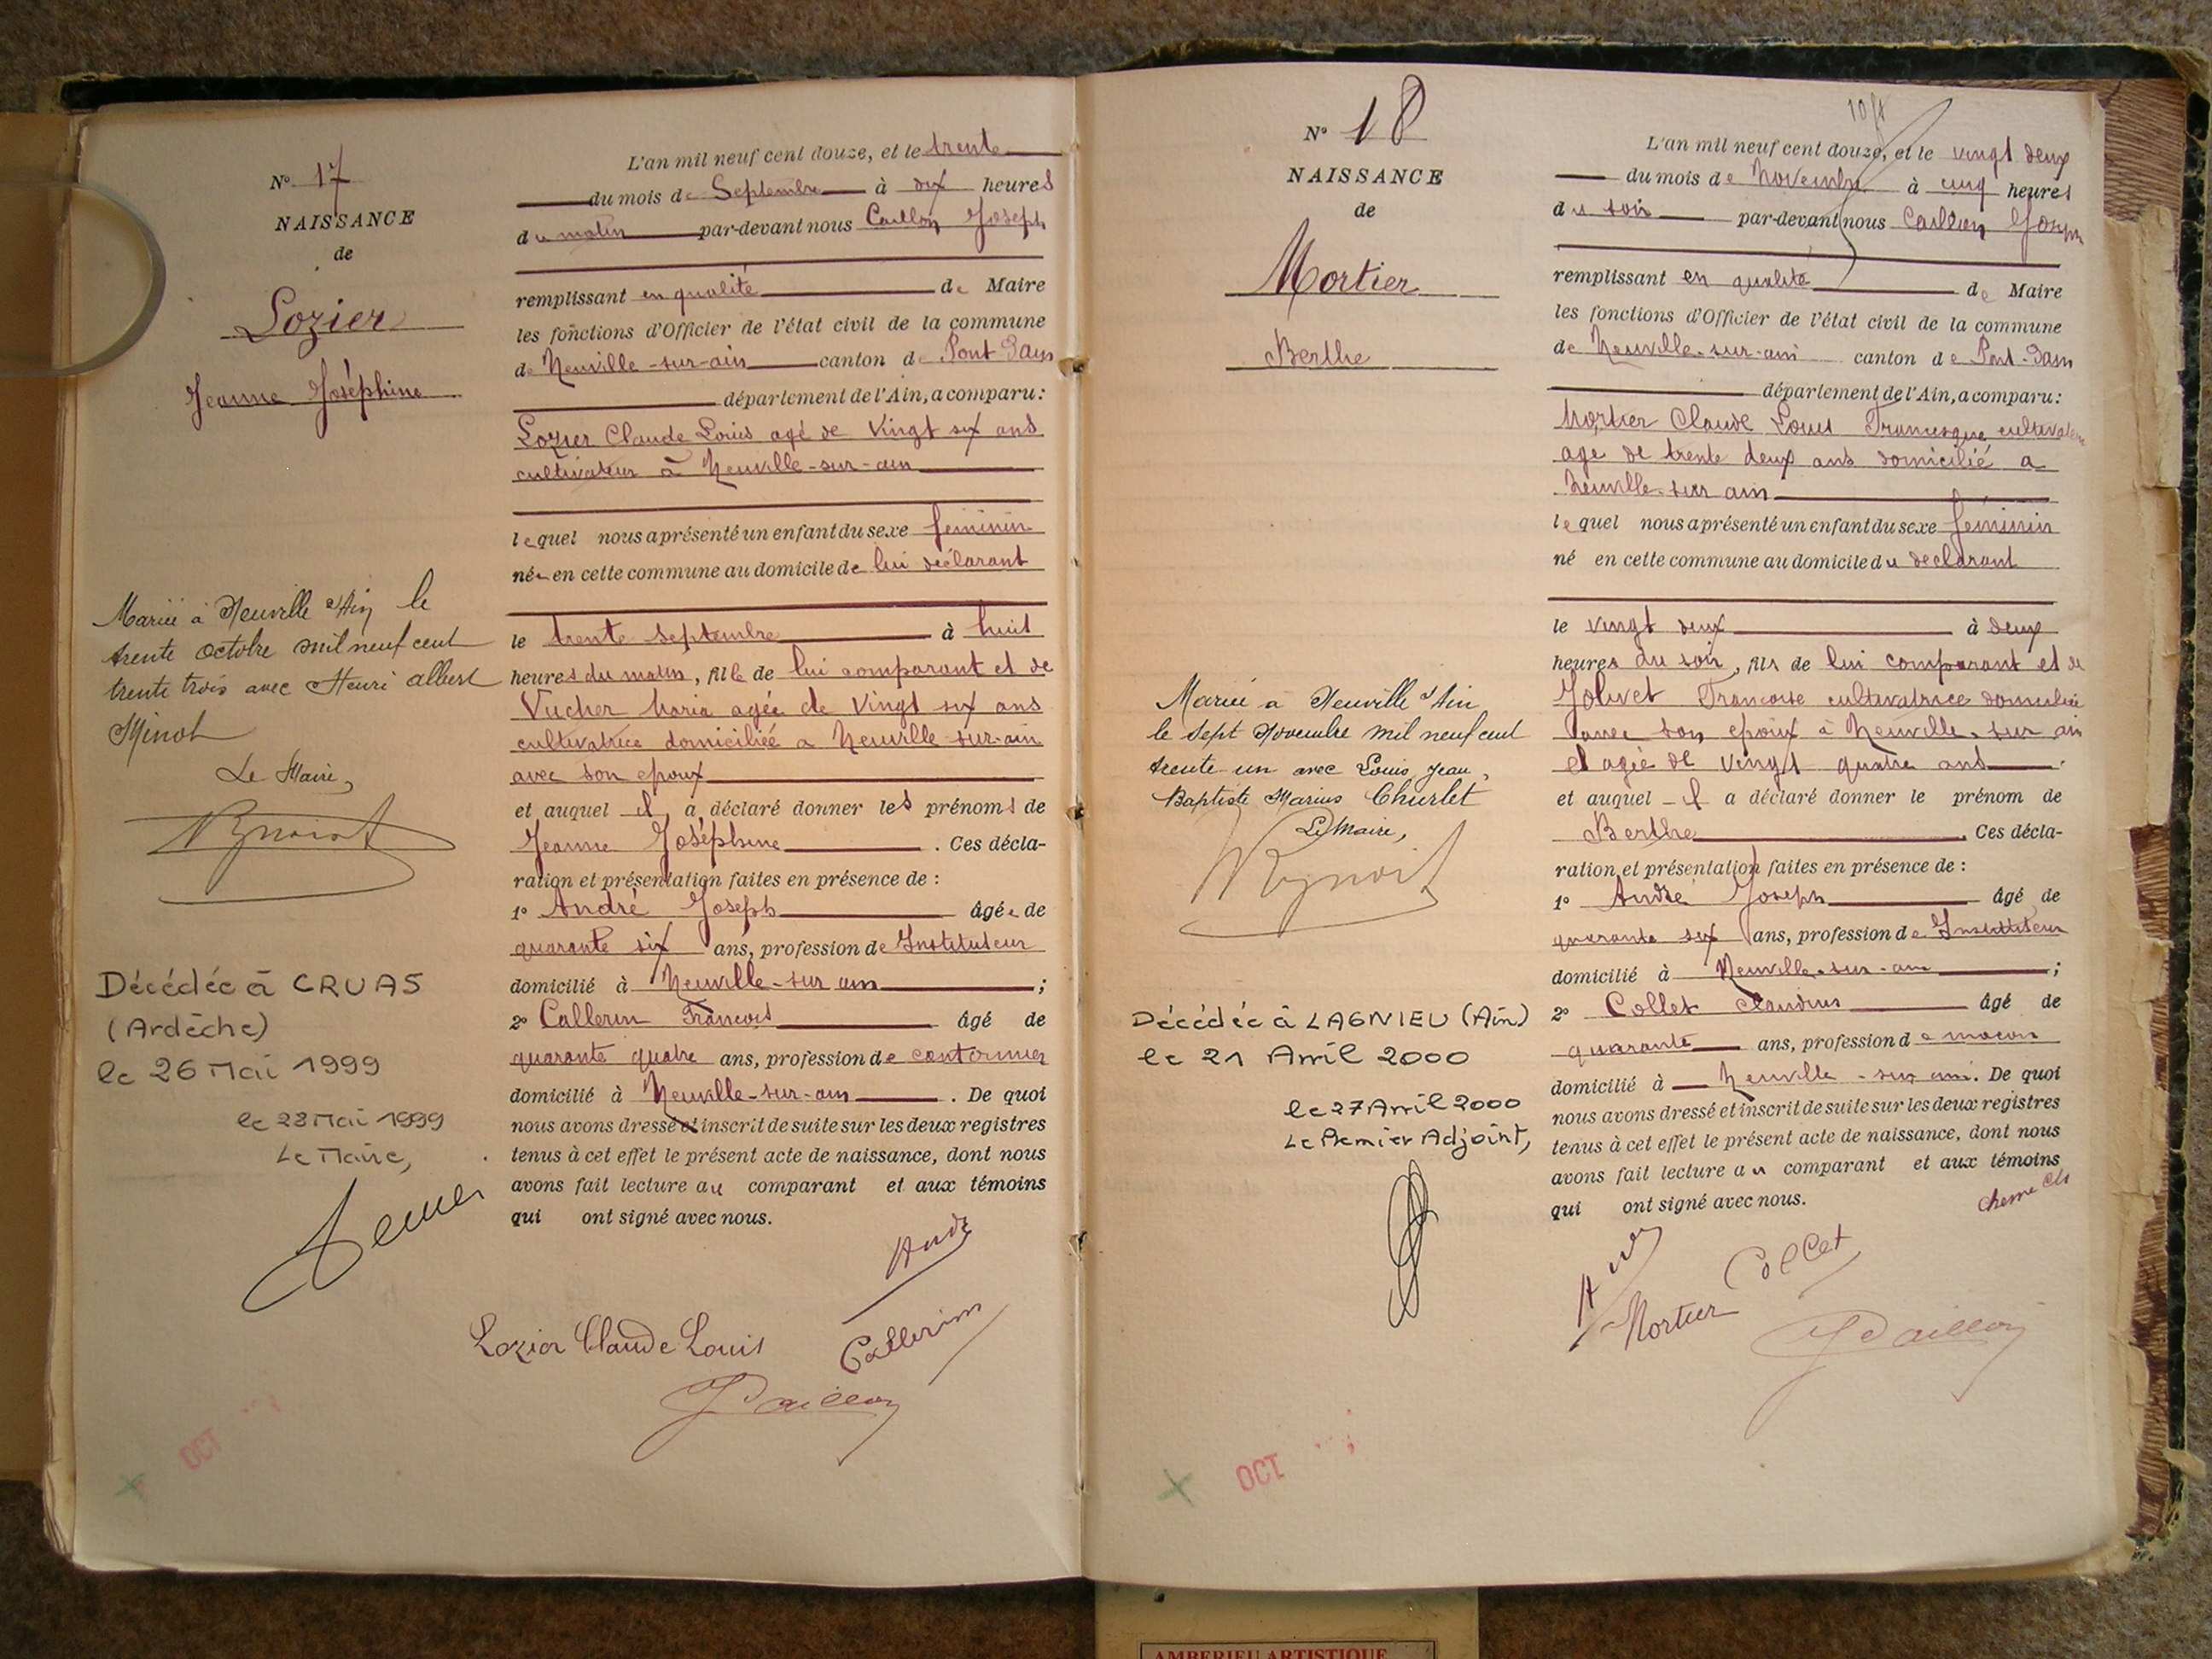 N° 17
NAISSANCE
de
Lozier
Jeanne Joséphine
Mariée à Neuville s/Ain le
trente octobre mil neuf cent
trente trois avec Henri Albert
Minot
Le Maire,
Décédée à CRUAS
(Ardèche)
le 26 Mai 1999
le 28 Mai 1999
Le Maire,
L'an mil neuf cent douze, et le trente
du mois de Septembre à dix heures
du matin par-devant nous Caillon Joseph
remplissant en qualité de Maire
les fonctions d'Officier de l'état civil de la commune
de Neuville-sur-ain canton de Pont d'ain
département de l'Ain, a comparu:
Lozier Claude Louis agé de vingt six ans
cultivateur à Neuville-sur-ain
lequel nous a présenté un enfant du sexe féminin
née en cette commune au domicile de lui déclarant
le trente septembre à huit
heures du matin, fille de lui comparant et de
Vucher Maria agée de vingt six ans
cultivatrice domiciliée a Neuville-sur-ain
avec son epoux
et auquel il a déclaré donner les prénoms de
Jeanne Joséphine. Ces décla-
ration et présentation faites en présence de :
1° André Joseph âgé de
quarante six ans, profession de Instituteur
domicilié à Neuville-sur ain ;
2° Callerin François âgé de
quarante quatre ans, profession de cantonnier
domicilié à Neuville-sur-ain. De quoi
nous avons dressé et inscrit de suite sur les deux registres
tenus à cet effet le présent acte de naissance, dont nous
avons fait lecture au comparant et aux témoins
qui ont signé avec nous.
André
Lozier Claude Louis
Callerin
J Caillon
OCT
N° 18
NAISSANCE
de
Mortier
Berthe
Mariée à Neuville s/Ain
le sept Novembre mil neuf cent
trente un avec Louis, Jean,
Baptiste Marius Churlet
Le Maire,
Décédée à LAGNIEU (Ain)
le 21 Avril 2000
le 27 Avril 2000
Le Premier Adjoint,
L'an mil neuf cent douze, et le vingt deux
du mois de Novembre à cinq heures
du soir par-devant nous Caillon Joseph
remplissant en qualité de Maire
les fonctions d'Officier de l'état civil de la commune
de Neuville-sur-ain canton de Pont-d'ain
département de l'Ain, a comparu:
Mortier Claude Louis cultivateur
age de trente deux ans domicilié a
Neuville-sur ain
lequel nous a présenté un enfant du sexe féminin
né en cette commune au domicile du declarant
le vingt deux à deux
heures du soir, fils de lui comparant et de
Jolivet Françoise cultivatrice domiciliée
avec son epoux à Neuville-sur ain
et agée de vingt quatre ans.
et auquel il a déclaré donner le prénom de
Berthe. Ces décla-
ration et présentation faites en présence de :
1° André Joseph âgé de
quarante six ans, profession de Instituteur
domicilié à Neuville-sur-ain ;
2° Collet Claudius âgé de
quarante ans, profession de maçon
domicilié à Neuville-sur ain. De quoi
nous avons dressé et inscrit de suite sur les deux registres
tenus à cet effet le présent acte de naissance, dont nous
avons fait lecture au comparant et aux témoins
qui ont signé avec nous.
Collet
Mortier
J Caillon
OCT
AMBERIEU ARTISTIQUE